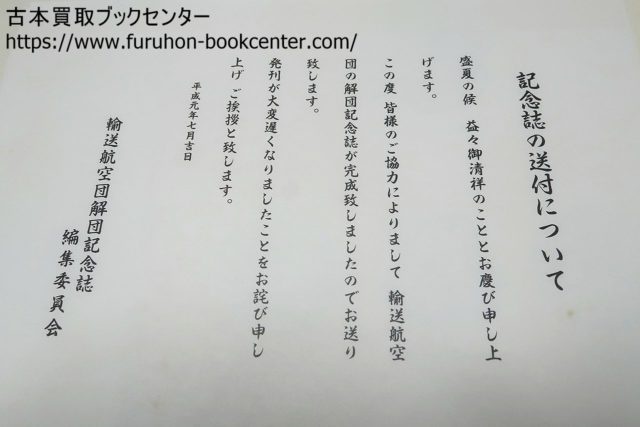 古本買取ブックセンター
https://www.furuhon-bookcenter.com/
記念誌の送付について
盛夏の候 益々御清祥のこととお慶び申し上
げます。
この度 皆様のご協力によりまして 輸送航空
団の解団記念誌が完成致しましたのでお送り
致します。
発刊が大変遅くなりましたことをお詫び申し
上げ ご挨拶と致します。
平成元年七月吉日
輸送航空団解団記念誌
編集委員会